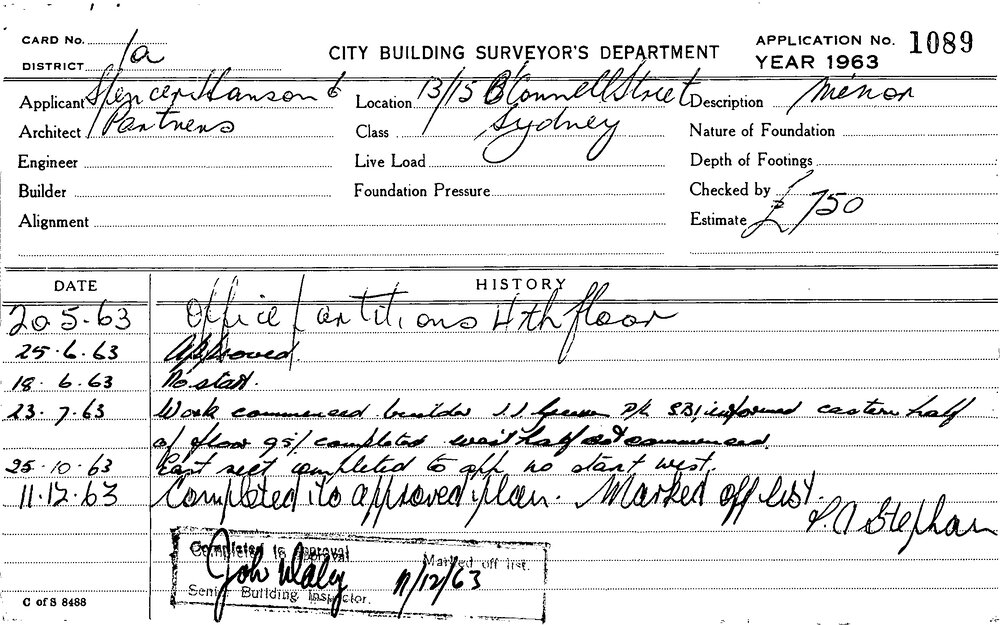 CARD No. 1a
DISTRICT
CITY BUILDING SURVEYOR'S DEPARTMENT
APPLICATION No. 1089
YEAR 1963
Applicant Spencer Hanson &
Location 13/15 O'Connell Street
Description Minor
Architect Partners
Class Sydney
Nature of Foundation
Engineer
Live Load
Depth of Footings
Builder
Foundation Pressure
Checked by
Alignment
Estimate £750
DATE HISTORY
20.5.63 Office partitions 4th floor
25.6.63 Approved.
18.6.63 No start.
23.7.63 Work commenced builder J.J. informed eastern half
of floor 95% completed west half not commenced.
25.10.63 East sect completed to app. no start west.
11.12.63 Completed to approved plan. Marked off list.
Stephan
Completed to approval
Marked off list.
John Daley 11/12/63
Senior Building Inspector.
C of S 8488